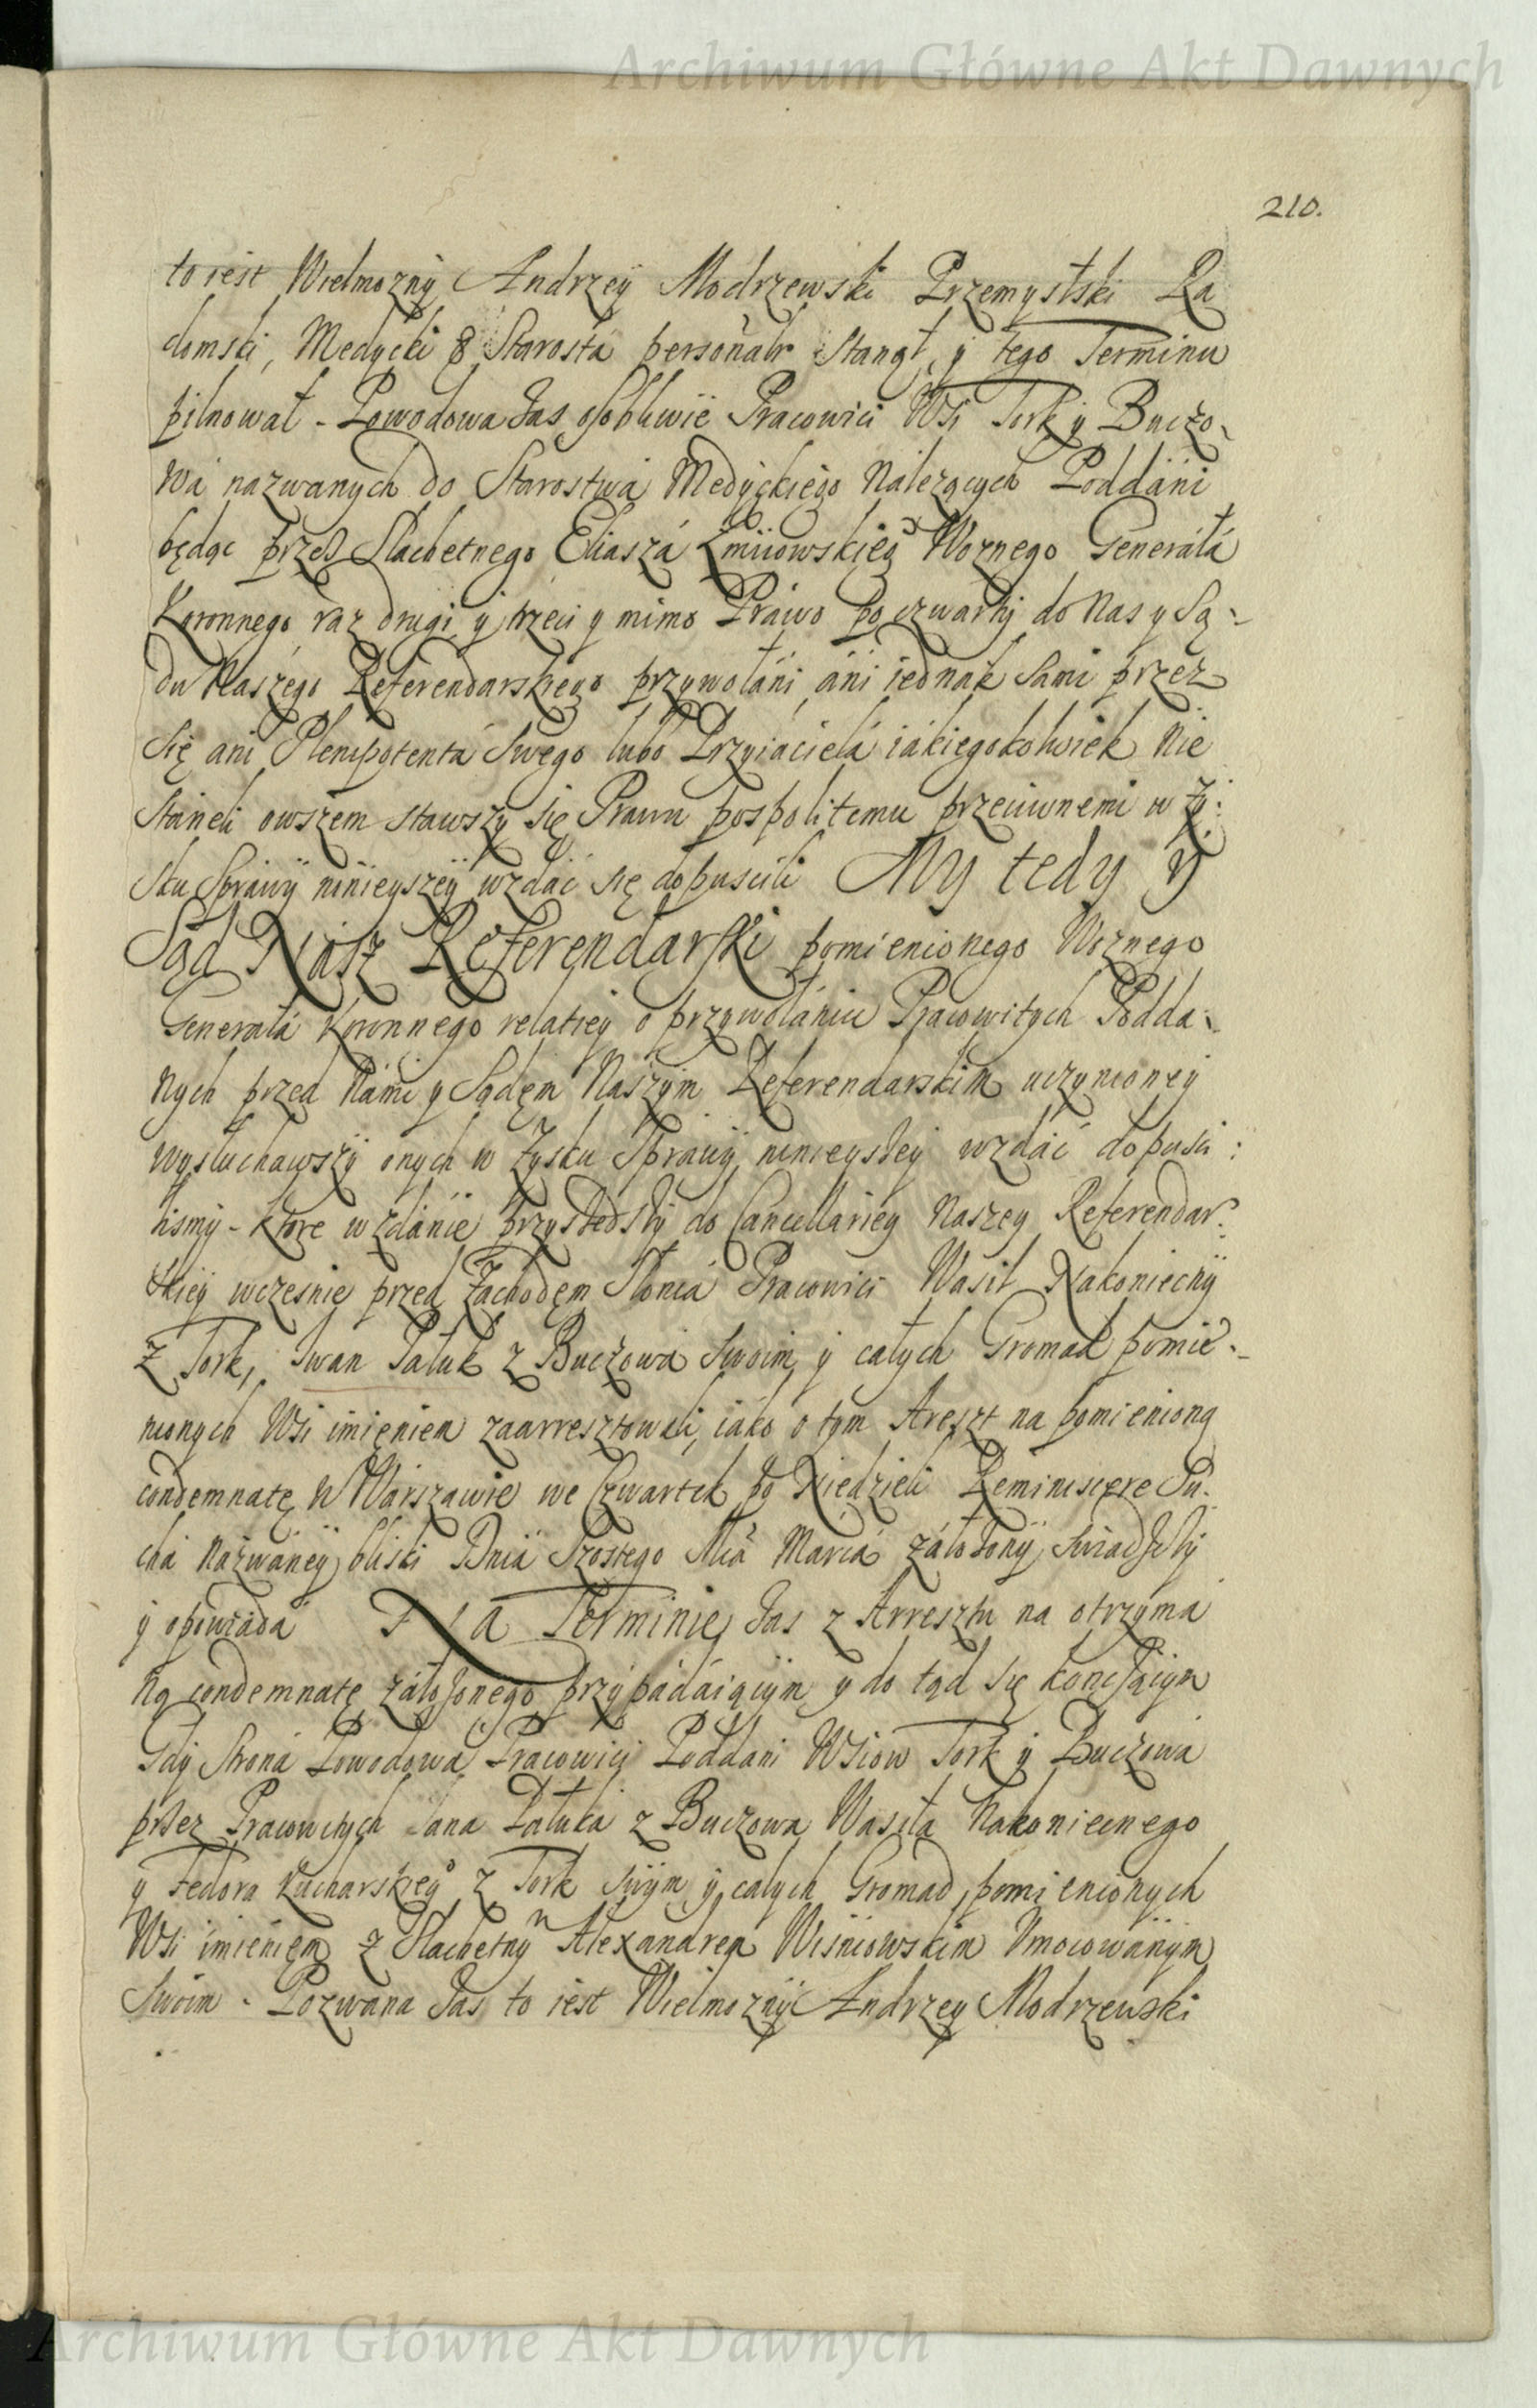 Archiwum Główne Akt Dawnych
210.
to iest Wielmozny Andrzey Modrzewski Przemyslski Ra
domski, Medycki & Starosta personalr Stanął, y tego Terminu
pilnował - Powodowa zas osobliwie Pracowici Wsi Tork y Buczo-
wa nazwanych do Starostwa Medyckiego Należących Poddani
będąc przez Slachetnego Eliasza Zmiiowskieg° Woznego Generała
Koronnego raz drugi y trzeci y mimo Prawo po czwarty do Nas y Są-
du Naszego Referendarskiego przywołani, ani iednak Sami przez
Się ani Plenipotenta Swego lubo Przyiaciela iakiegokolwiek Nie
Staneli owszem stawszy się Prawu pospolitemu przeciwnemi w Zy:
sku Sprawy ninieyszey wzdać się dopuscili My tedy y
Sąd Nasz Referendarski pomienionego Woznego
Generała Koronnego relatiey o przywołaniu Pracowitych Podda:
Nych przed Nami y Sądem Naszym Referendarskim uczynioney
wysłuchawszy onych w Zysku Sprawy ninieyszey wzdać dopusci:
lismy - Ktore wzdanie przyszedszy do Cancellariey Naszey Referendar:
skiey wczesnie przed Zachodem Słonca Pracowici Wasil Nakonieczny
z Tork, Iwan Pałuk z Buczowa Swoim y całych Gromad pomie:
nionych Wsi imieniem zaarresztowali, iako o tym Areszt na pomienioną
condemnatę w Warszawie we Czwartek po Niedzieli Reminiscere Su:
cha Nazwaney bliski Dnia Szostego Mca Marca założony, swiadszy
y opowiada Na Terminie Zas z Arresztu na otrzyma
Ną condemnatę założonego przypadaiącym y do tąd się konczącym
Gdy Strona Powodowa Pracowici Poddani Wsiow Tork y Buczowa
przez Pracowitych Jana Pałuka z Buczowa Wasila Nakoniecnego
y Fedora Kucharskieg° z Tork Swym y całych Gromad pomienionych
Wsi imieniem z Slachetny Alexandrem Wisniowskim Umocowanym
Swoim - Pozwana Zas to iest Wielmozny Andrzey Modrzewski
Archiwum Główne Akt Dawnych